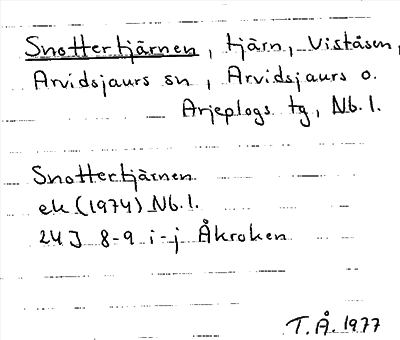 Snottertjärnen, tjärn, Viståsen,
Arvidsjaurs sn, Arvidsjaurs o.
Arjeplogs tg, Nb. l.
Snottertjärnen
ek (1974) Nb. l.
24J 8-9 i-j Åkroken
T.Å. 1977